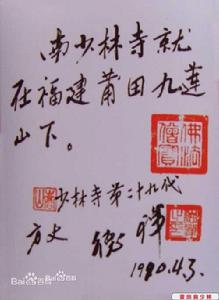 南少林寺就
在福建莆田九莲
山下。
少林寺第二十九代
方丈 德禅
1990.4.3
Baidu百科